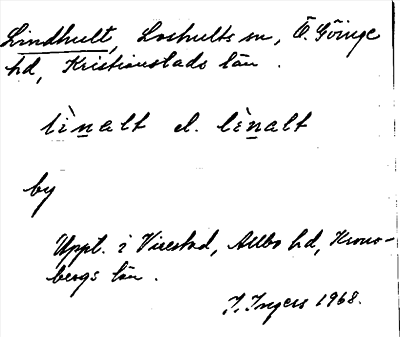 Lindhult, Loshults sn, Ö. Göinge
hd, Kristianstads län.
lìnalt el. lènalt
by
Uppt. i Virestad, Allbo hd, Krono-
bergs län.
I. Ingers 1968.